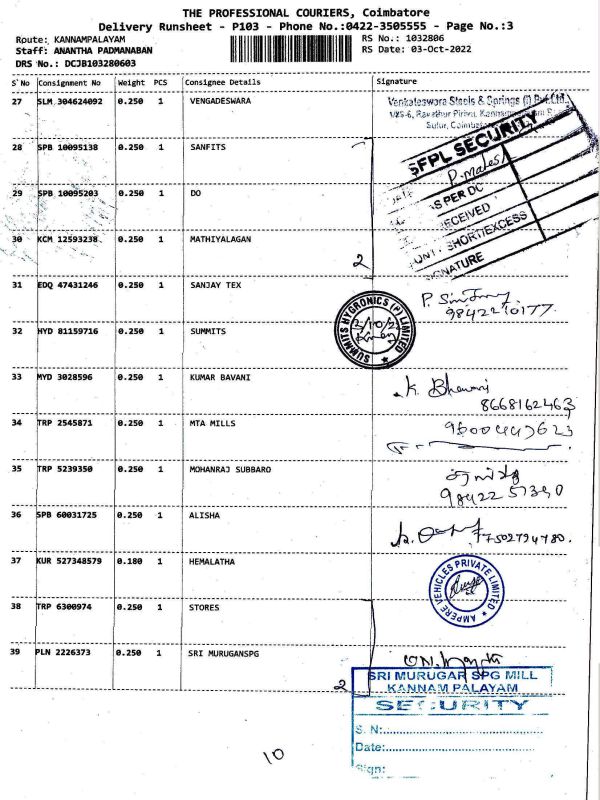 THE PROFESSIONAL COURIERS, Coimbatore
Delivery Runsheet - P103 - Phone No.:0422-3505555 - Page No.:3
Route: KANNAMPALAYAM
RS No.: 1032806
Staff: ANANTHA PADMANABAN
RS Date: 03-Oct-2022
DRS No.: DCJB103280603
S'No Consignment No Weight PCS Consignee Details Signature
27 SLM 304624092 0.250 1 VENGADESWARA
Venkateswara Steels & Springs (I) Pvt.Ltd.,
Sulur, Coimbatore
SFPL SECURITY
P. Malesh
AS PER DC
RECEIVED
SHORT/EXCESS
SIGNATURE
28 SPB 10095138 0.250 1 SANFITS
29 SPB 10095203 0.250 1 DO
30 KCM 12593238 0.250 1 MATHIYALAGAN
2
31 EDQ 47431246 0.250 1 SANJAY TEX
9842210177
32 HYD 81159716 0.250 1 SUMMITS
SUMMITS HYGRONICS (P) LIMITED
33 MYD 3028596 0.250 1 KUMAR BAVANI
K. Bhavani
8668162463
34 TRP 2545871 0.250 1 MTA MILLS
35 TRP 5239350 0.250 1 MOHANRAJ SUBBARO
36 SPB 60031725 0.250 1 ALISHA
7502794780
37 KUR 527348579 0.180 1 HEMALATHA
AMPERE VEHICLES PRIVATE LIMITED
38 TRP 6300974 0.250 1 STORES
39 PLN 2226373 0.250 1 SRI MURUGANSPG
2
SRI MURUGAR SPG MILL
KANNAM PALAYAM
SECURITY
S. N:
Date:
Sign:
10